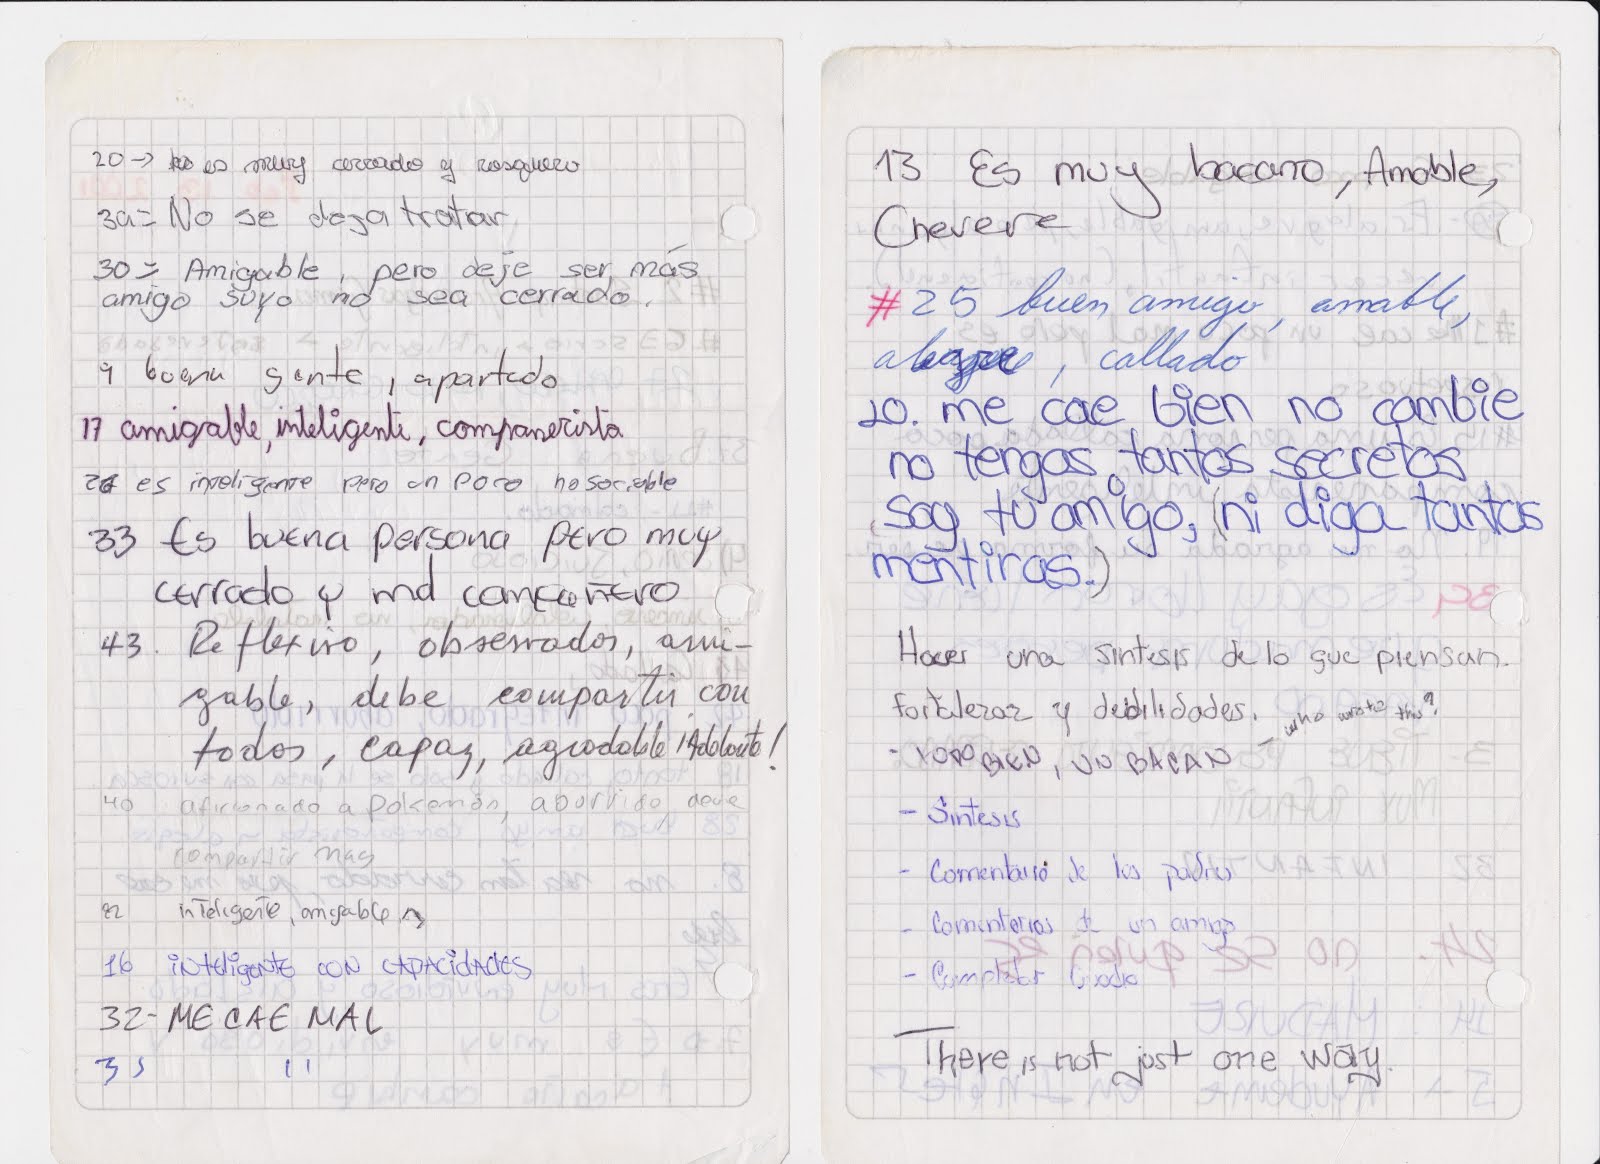 20→ no es muy cerrado y rosquero
39= No se deja tratar
30= Amigable, pero deje ser más
amigo suyo no sea cerrado.
9 buena gente, apartado
17 amigable, inteligente, companerista
es inteligente pero un poco no sociable
33 Es buena persona pero muy
cerrado y compañero
43. Reflexivo, observador, ami-
gable, debe compartir con
todos, capaz, agradable ¡Adelante!
40 aficionado a pokemón, aburrido, deve
compartir mas
inteligente, amigable,
16 inteligente con capacidades
32- ME CAE MAL
35 ''
13 Es muy bacano, Amable,
Chevere
#25 buen amigo, amable,
alegre, callado
20. me cae bien no cambie
no tengas tantos secretos
soy tú amigo, (ni diga tantas
mentiras.)
Hacer una sintesis de lo que piensan.
fortalezas y debilidades.
- who wrote this?
- TODO BIEN, UN BACAN
- Sintesis
- Comentario de los padres
- Comentarios de un amigo
- Completar Cuadro
There is not just one way.